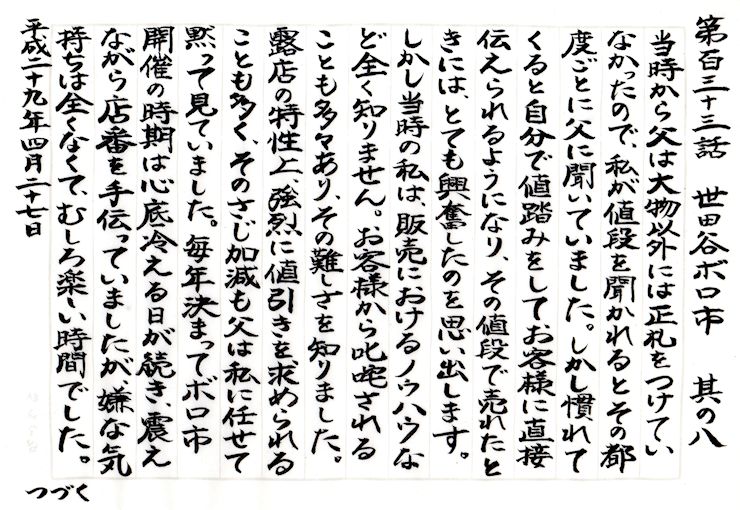 第百三十三話　世田谷ボロ市　其の八
当時から父は大物以外には正札をつけてい
なかったので、私が値段を聞かれるとその都
度ごとに父に聞いていました。しかし慣れて
くると自分で値踏みをしてお客様に直接
伝えられるようになり、その値段で売れたと
きには、とても興奮したのを思い出します。
しかし当時の私は、販売におけるノウハウな
ど全く知りません。お客様から叱咤される
ことも多々あり、その難しさを知りました。
露店の特性上、強烈に値引きを求められる
ことも多く、そのさじ加減も父は私に任せて
黙って見ていました。毎年決まってボロ市
開催の時期は心底冷える日が続き、震え
ながら店番を手伝っていましたが、嫌な気
持ちは全くなくて、むしろ楽しい時間でした。
平成二十九年四月二十七日
つづく